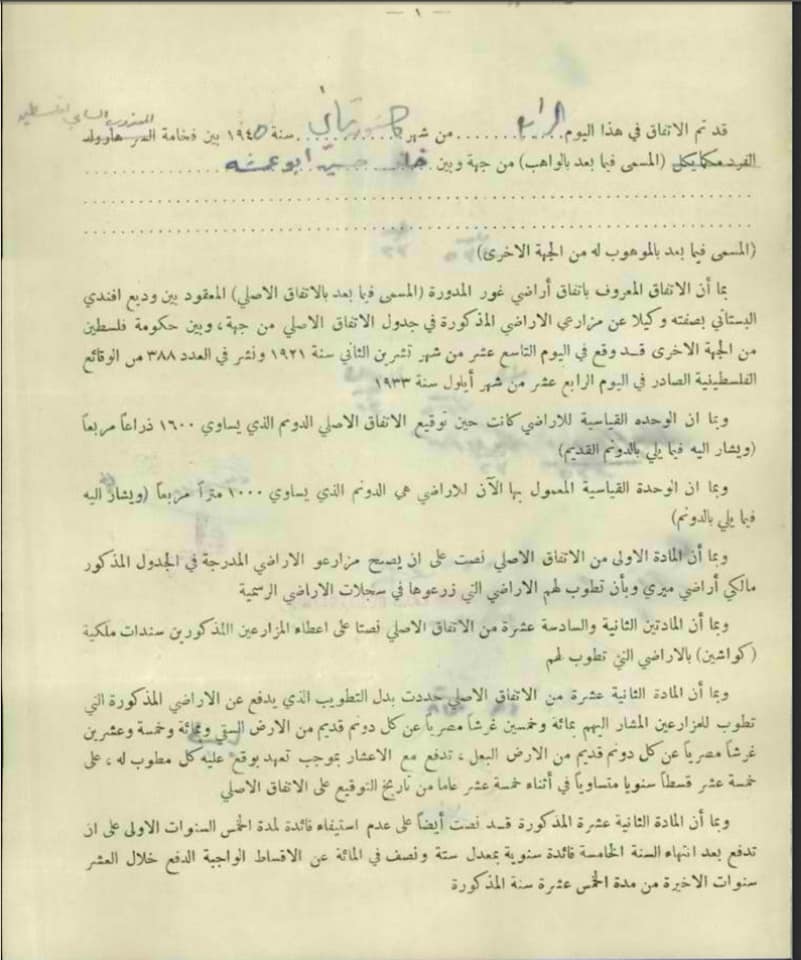 — ١ —
المندوب السامي لفلسطين
قد تم الاتفاق في هذا اليوم الرابع من شهر كانون ثاني سنة ١٩٤٥ بين فخامة السر هارولد
الفرد مكمايكل (المسمى فيما بعد بالواهب) من جهة وبين حسين ابو عمشه
(المسمى فيما بعد بالموهوب له من الجهة الاخرى)
بما أن الاتفاق المعروف باتفاق أراضي غور المدورة (المسمى فيما بعد بالاتفاق الاصلي) المعقود بين وديع افندي
البستاني بصفته وكيلا عن مزارعي الاراضي المذكورة في جدول الاتفاق الاصلي من جهة، وبين حكومة فلسطين
من الجهة الاخرى قد وقع في اليوم التاسع عشر من شهر تشرين الثاني سنة ١٩٢١ ونشر في العدد ٣٨٨ من الوقائع
الفلسطينية الصادر في اليوم الرابع عشر من شهر أيلول سنة ١٩٣٣
وبما ان الوحده القياسية للاراضي كانت حين توقيع الاتفاق الاصلي الدونم الذي يساوي ١٦٠٠ ذراعاً مربعاً
(ويشار اليه فيما يلي بالدونم القديم)
وبما ان الوحدة القياسية المعمول بها الآن للاراضي هي الدونم الذي يساوي ١٠٠٠ متراً مربعاً (ويشار اليه
فيما يلي بالدونم)
وبما أن المادة الاولى من الاتفاق الاصلي نصت على ان يصبح مزارعو الاراضي المدرجة في الجدول المذكور
مالكي أراضي ميري وبأن تطوب لهم الاراضي التي زرعوها في سجلات الاراضي الرسمية
وبما أن المادتين الثانية والسادسة عشرة من الاتفاق الاصلي نصتا على اعطاء المزارعين المذكورين سندات ملكية
(كواشين) بالاراضي التي تطوب لهم
وبما أن المادة الثانية عشرة من الاتفاق الاصلي حددت بدل التطويب الذي يدفع عن الاراضي المذكورة التي
تطوب للمزارعين المشار اليهم بمائة وخمسين غرشاً مصرياً عن كل دونم قديم من الارض السقي وبمائة وخمسة وعشرين
غرشاً مصرياً عن كل دونم قديم من الارض البعل، تدفع مع الاعشار بموجب تعهد يوقع عليه كل مطوب له، على
خمسة عشر قسطاً سنويا متساوياً في أثناء خمسة عشر عاما من تاريخ التوقيع على الاتفاق الاصلي
وبما أن المادة الثانية عشرة المذكورة قد نصت أيضاً على عدم استيفاء فائدة لمدة الخمس السنوات الاولى على ان
تدفع بعد انتهاء السنة الخامسة فائدة سنوية بمعدل ستة ونصف في المائة عن الاقساط الواجبة الدفع خلال العشر
سنوات الاخيرة من مدة الخمس عشرة سنة المذكورة